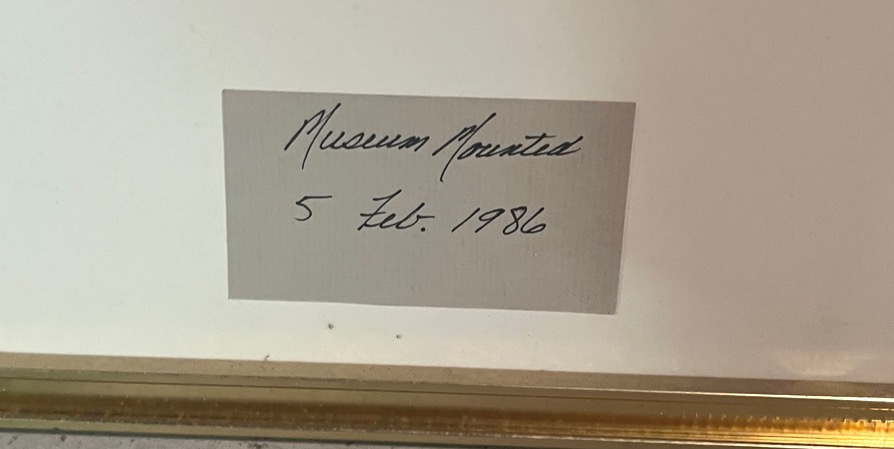 Museum Mounted
5 Feb. 1986